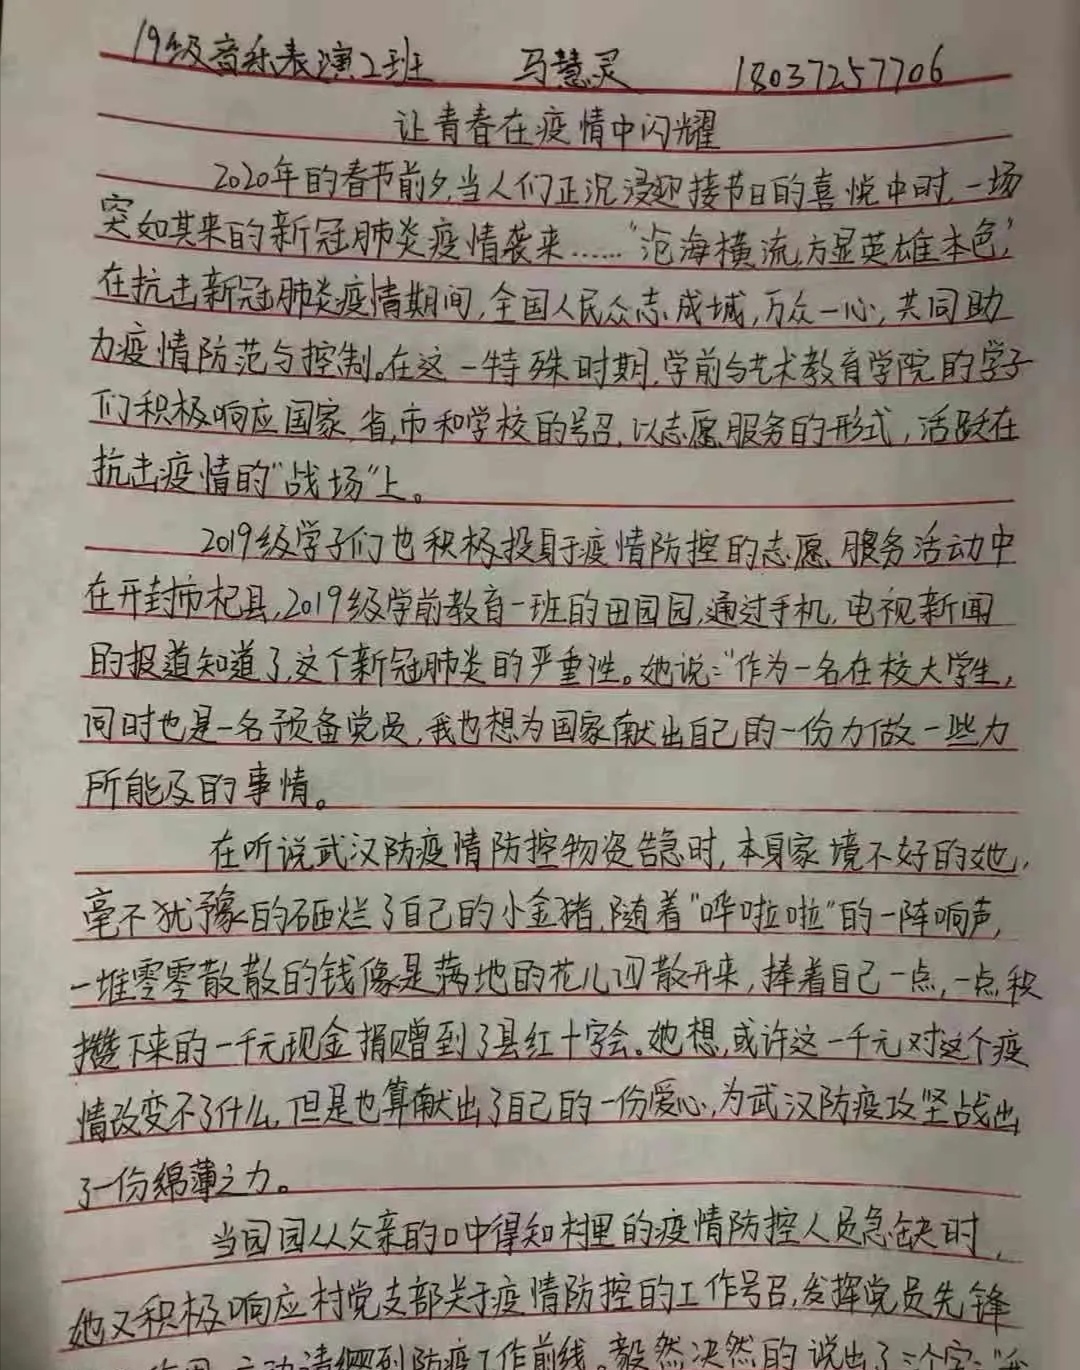 19级音乐表演2班 马慧灵 18037257706
让青春在疫情中闪耀
2020年的春节前夕,当人们正沉浸迎接节日的喜悦中时,一场
突如其来的新冠肺炎疫情袭来……“沧海横流,方显英雄本色”,
在抗击新冠肺炎疫情期间,全国人民众志成城,万众一心,共同助
力疫情防范与控制。在这一特殊时期,学前与艺术教育学院的学子
们积极响应国家、省、市和学校的号召,以志愿服务的形式,活跃在
抗击疫情的“战场”上。
2019级学子们也积极投身于疫情防控的志愿服务活动中
在开封市杞县,2019级学前教育一班的田园园,通过手机,电视新闻
的报道知道了,这个新冠肺炎的严重性。她说:“作为一名在校大学生,
同时也是一名预备党员,我也想为国家献出自己的一份力做一些力
所能及的事情。
在听说武汉防疫情防控物资告急时,本身家境不好的她,
毫不犹豫的砸烂了自己的小金猪,随着“哗啦啦”的一阵响声,
一堆零零散散的钱像是满地的花儿四散开来,捧着自己一点,一点积
攒下来的一千元现金捐赠到了县红十字会。她想,或许这一千元对这个疫
情改变不了什么,但是也算献出了自己的一份爱心,为武汉防疫攻坚战出
了一份绵薄之力。
当园园从父亲的口中得知村里的疫情防控人员急缺时,
她又积极响应村党支部关于疫情防控的工作号召,发挥党员先锋
作用,主动请缨到防疫工作前线。毅然决然的说出了三个字:“